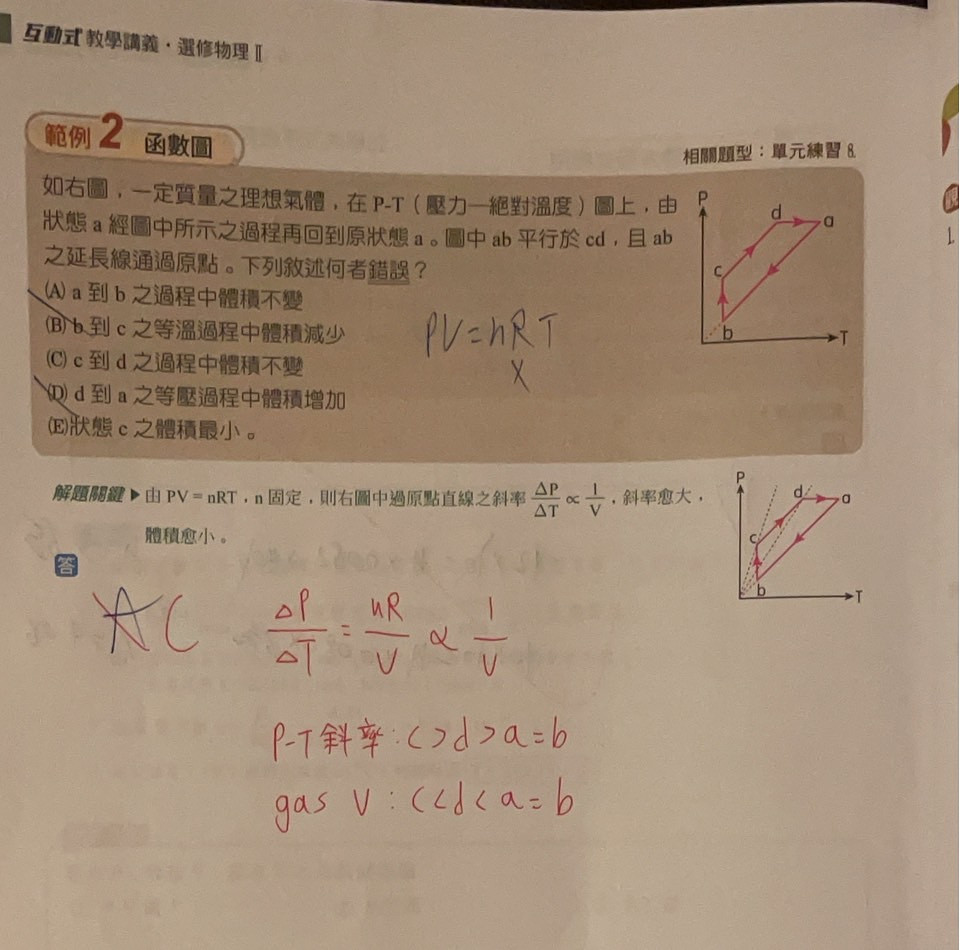 互動式教學講義・選修物理 Ⅱ
範例2 函數圖
相關題型：單元練習 8.
如右圖，一定質量之理想氣體，在 P-T（壓力—絕對溫度）圖上，由
狀態 a 經圖中所示之過程再回到原狀態 a。圖中 ab 平行於 cd，且 ab
之延長線通過原點。下列敘述何者錯誤？
(A) a 到 b 之過程中體積不變
(B) b 到 c 之等溫過程中體積減少
(C) c 到 d 之過程中體積不變
(D) d 到 a 之等壓過程中體積增加
(E)狀態 c 之體積最小。
P
d
a
c
b
T
PV=nRT
X
解題關鍵▶由 PV = nRT，n 固定，則右圖中過原點直線之斜率 ΔP/ΔT ∝ 1/V，斜率愈大，
體積愈小。
P
d
a
c
b
T
答
A C
ΔP/ΔT = nR/V ∝ 1/V
P-T斜率：c>d>a=b
gas V：c<d<a=b
1.